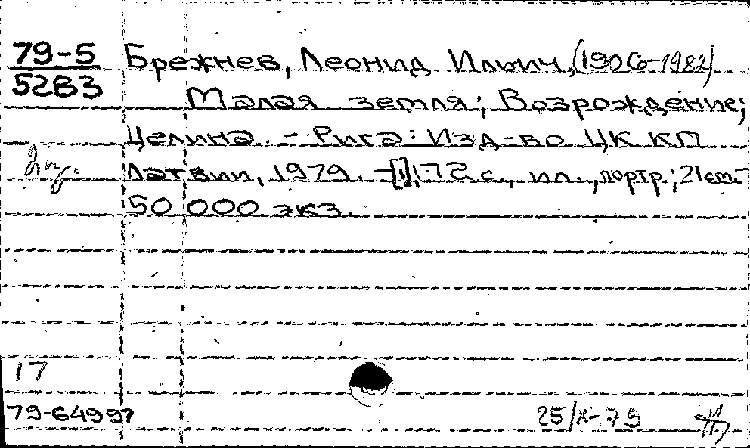 79-5 Брежнев, Леонид Ильич, (1906-1982)
5283 Малая земля; Возрождение;
Целина. - Рига: Изд-во ЦК КП
Латвии, 1979. - 172 с., ил., портр.; 21 cm.
50 000 экз.
17
79-64997 25/X-79